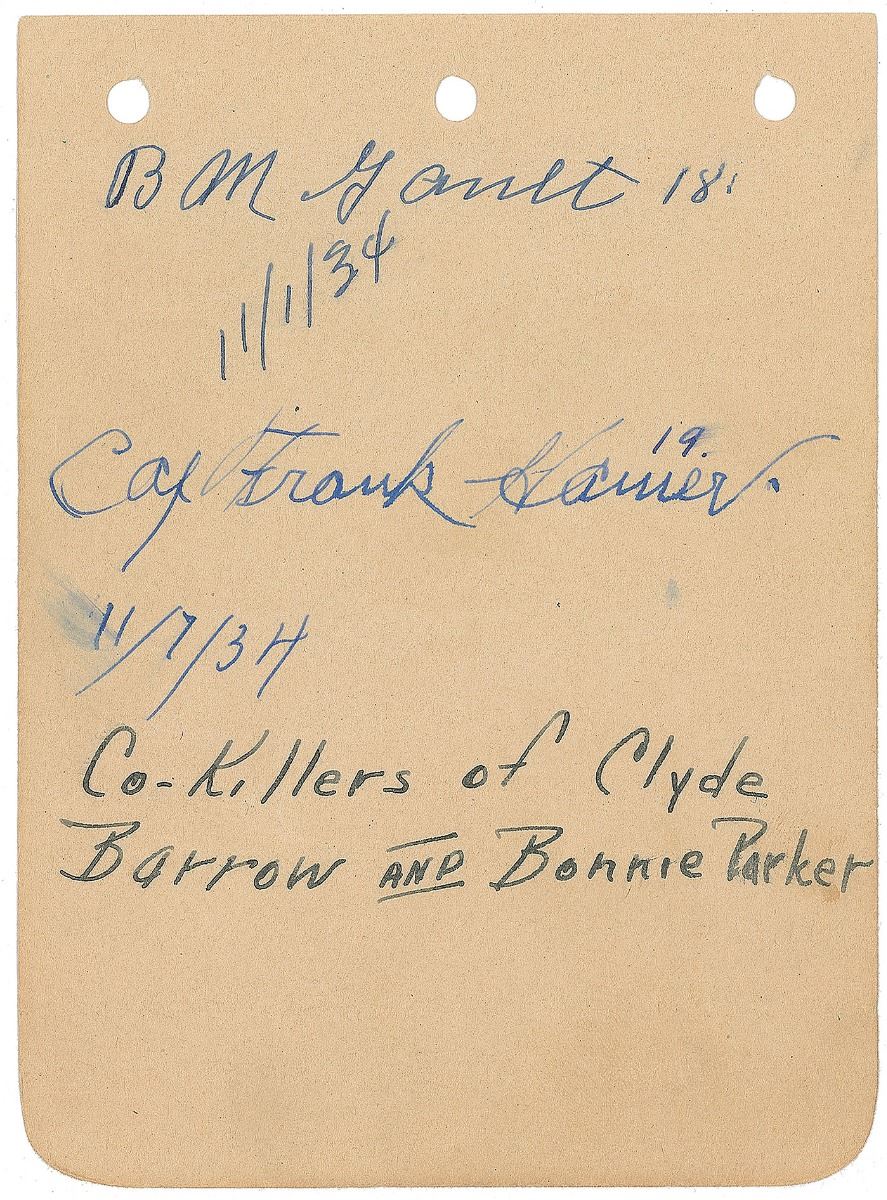 B M Gault 18.
11/1/34
19.
Cap Frank Hamer.
11/7/34
Co-Killers of Clyde
Barrow AND Bonnie Parker